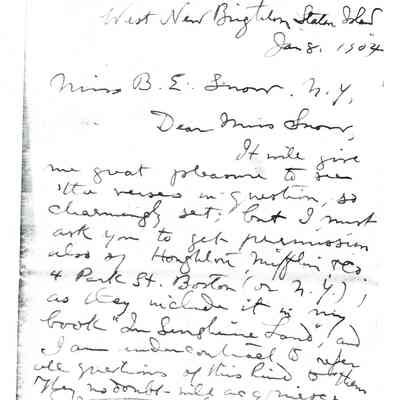 West New Brighton, Staten Island
Jan 8. 1904
Miss B. E. Snow. N.Y.
Dear Miss Snow,
It will give
me great pleasure to see
the verses in question, so
charmingly set; but I must
ask you to get permission
also of Houghton, Mifflin & Co
4 Park St. Boston (or N.Y.),
as they include it in my
book "In Sunshine Land", and
I am under contract to refer
all questions of this kind to them
They no doubt will